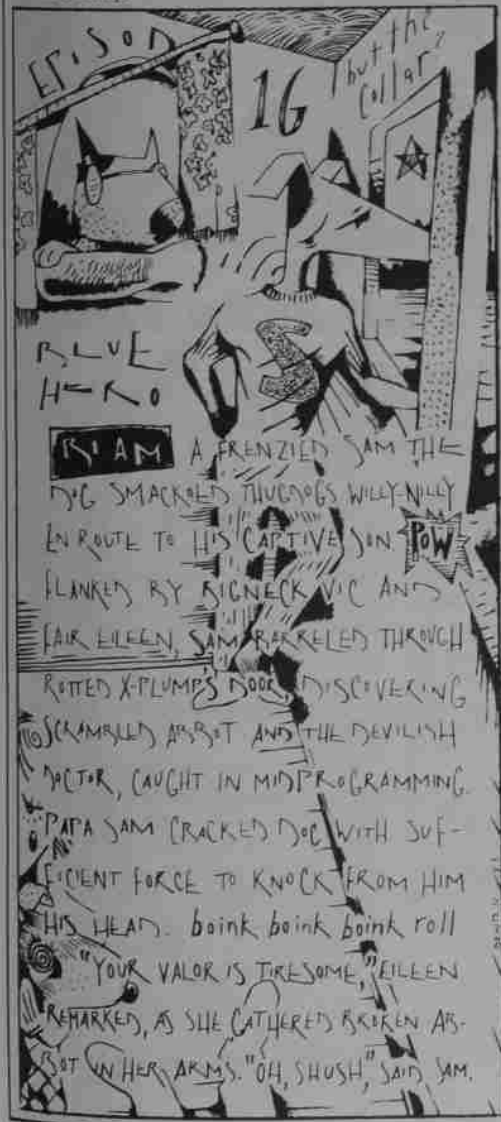 EPISOD
16
but the
collar?
S
BLUE
HERO
BLAM A FRENZIED SAM THE
DOG SMACKED THUGDOGS WILLY-NILLY
EN ROUTE TO HIS CAPTIVE SON. POW
FLANKED BY BIGNECK VIC AND
FAIR EILEEN, SAM BARRELED THROUGH
ROTTED X-PLUMP'S DOOR, DISCOVERING
SCRAMBLED ABBOT AND THE DEVILISH
DOCTOR, CAUGHT IN MIDPROGRAMMING.
PAPA SAM CRACKED DOC WITH SUF-
FICIENT FORCE TO KNOCK FROM HIM
HIS HEAD. boink boink boink roll
"YOUR VALOR IS TIRESOME," EILEEN
REMARKED, AS SHE GATHERED BROKEN AB-
BOT IN HER ARMS. "OH, SHUSH," SAID SAM.